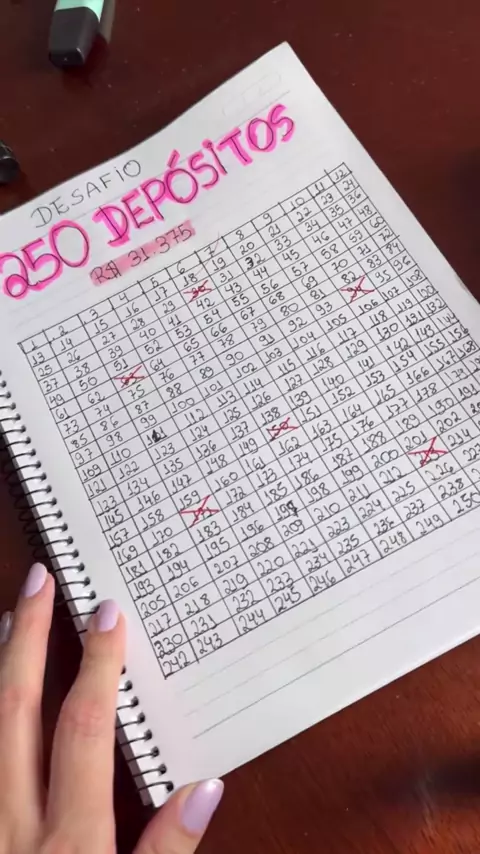 DESAFIO
250 DEPÓSITOS
R$ 31.375
1 2 3 4 5 6 7 8 9 10 11 12
13 14 15 16 17 18 19 20 21 22 23 24
25 26 27 28 29 31 32 33 34 35 36
37 38 39 40 41 42 43 44 45 46 47 48
49 50 51 52 53 54 55 56 57 58 59 60
61 62 64 65 66 67 68 69 70 71 72
73 74 75 76 77 78 79 80 81 82 83 84
85 86 87 88 89 90 91 92 93 95 96
97 98 99 100 101 102 103 104 105 106 107 108
109 110 111 112 113 114 115 116 117 118 119 120
121 122 123 124 125 126 127 128 129 130 131 132
134 135 136 137 138 139 140 141 142 143 144
145 146 147 148 149 151 152 153 154 155 156
157 158 159 160 161 162 163 164 165 166 167 168
169 170 172 173 174 175 176 177 178 179
181 182 183 184 185 186 187 188 189 190 191
193 194 195 196 198 199 200 201 202
205 206 207 208 209 210 211 212 214
217 218 219 220 221 223 224 225 226
230 231 232 233 234 235 236 237 238
242 243 244 245 246 247 248 249 250